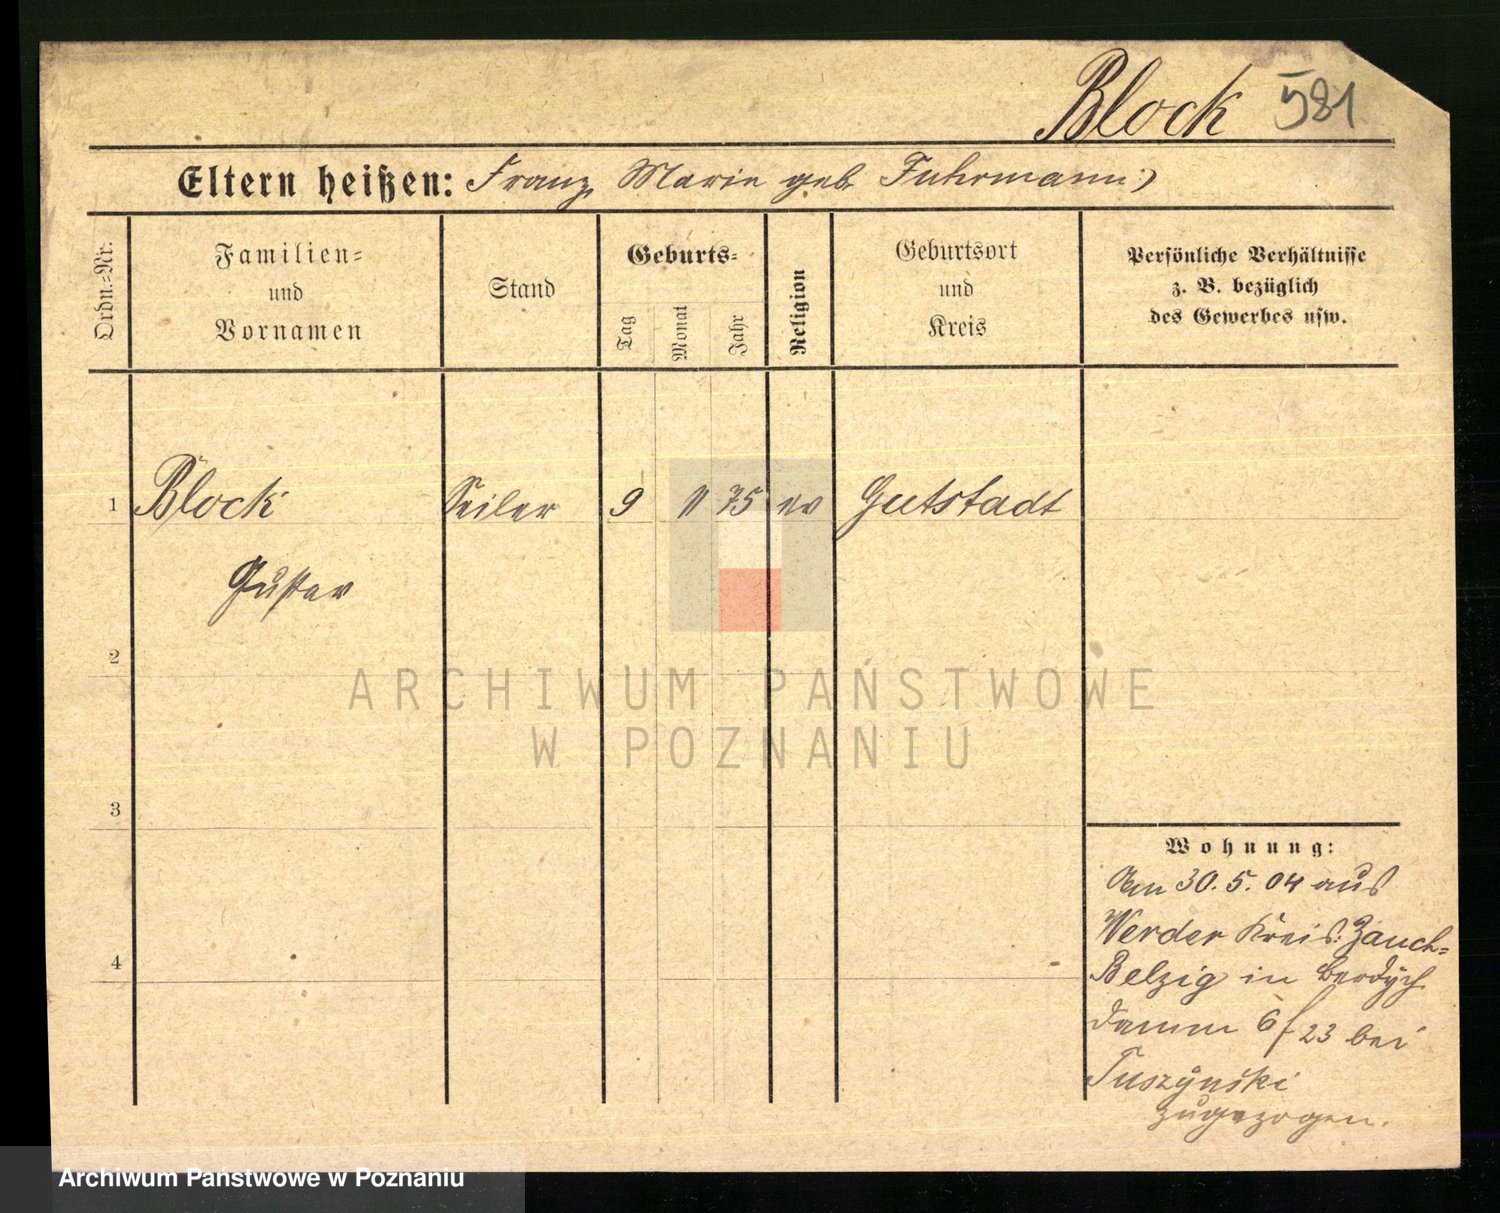 Block 581
Eltern heißen: Franz, Marie geb. Fuhrmann
Ordn.-Nr.
Familien-
und
Vornamen
Stand
Geburts-
Tag
Monat
Jahr
Religion
Geburtsort
und
Kreis
Persönliche Verhältnisse
z. B. bezüglich
des Gewerbes usw.
1 Block Seiler 9 11 75 ev Gutstadt
Gustav
2
ARCHIWUM PAŃSTWOWE
W POZNANIU
3
4
Wohnung:
Am 30.5.04 aus
Werder Kreis: Zauch-
Belzig in
damm 6 / 23 bei
Tuszynski
zugezogen.
Archiwum Państwowe w Poznaniu